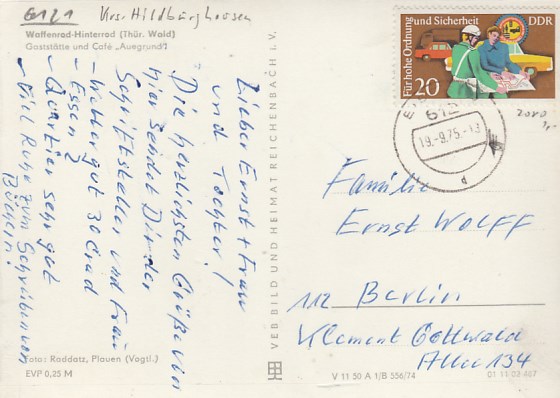 6121 Krs. Hildburghausen
Waffenrod-Hinterrod (Thür. Wald)
Gaststätte und Café „Auegrund“
Lieber Ernst + Frau
und Tochter!
Die herzlichsten Grüße von
hier sendet Dir der
Schriftsteller und Frau
- Wetter gut 30 Grad
- Essen 2
- Quartier sehr gut
- Viel Ruhe zum Schreiben von
Büchern!
Foto: Raddatz, Plauen (Vogtl.)
EVP 0,25 M
VEB BILD UND HEIMAT REICHENBACH i. V.
V 11 50 A 1/B 556/74
01 11 02 487
Für hohe Ordnung und Sicherheit
DDR
20
612
19.-9.75.-13
d
2040
Familie
Ernst WOLFF
112 Berlin
Klement Gottwald
Allee 134